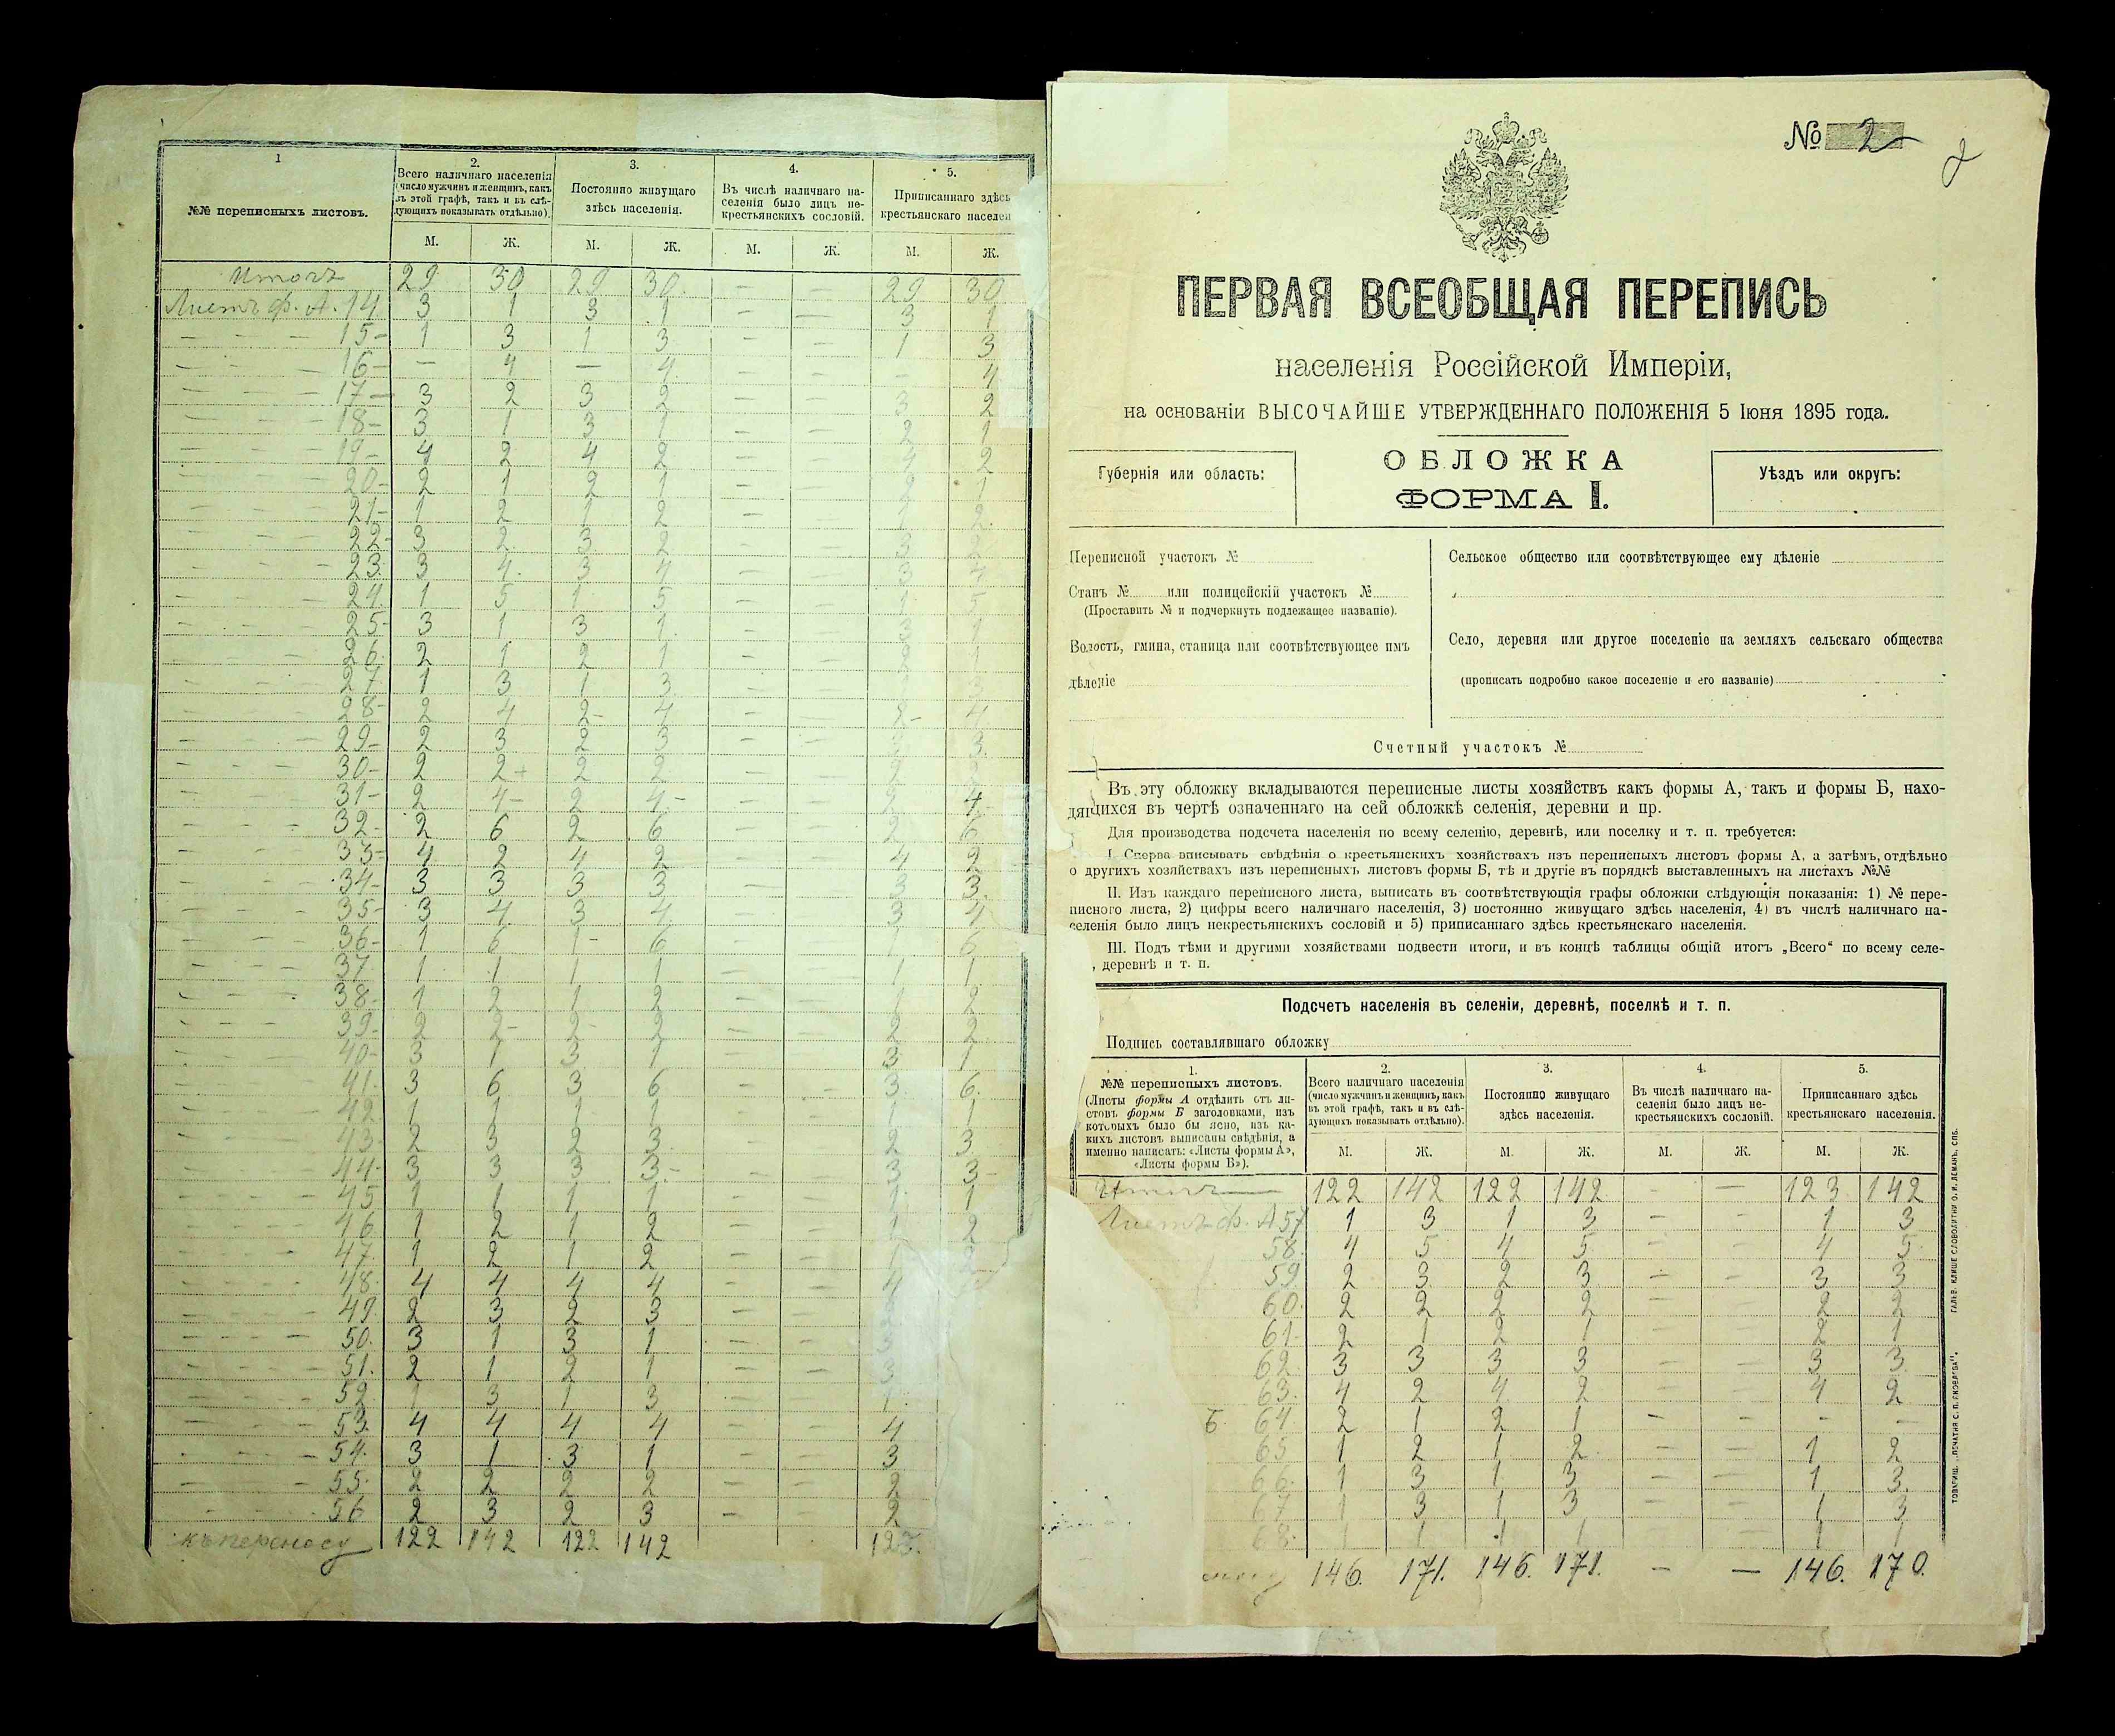 1
2.
3.
4.
5.
№№ переписныхъ листовъ.
Всего наличнаго населенія
(число мужчинъ и женщинъ, какъ
въ этой графѣ, такъ и въ слѣ-
дующихъ показывать отдѣльно).
Постоянно живущаго
здѣсь населенія.
Въ числѣ наличнаго на-
селенія было лицъ не-
крестьянскихъ сословій.
Приписаннаго здѣсь
крестьянскаго населен
М. Ж. М. Ж. М. Ж. М. Ж.
Итогъ 29 30 29 30 — — 29 30
Листъ ф. А. 14 3 1 3 1 — — 3 1
15 1 3 1 3 — — 1 3
16 — 4 — 4 — — — 4
17 3 2 3 2 — — 3 2
18 3 1 3 1 — — 2 1
19 4 2 4 2 — — 4 2
20 2 1 2 1 — — 2 1
21 1 2 1 2 — — 2
22 3 2 3 2 — —
23 3 4 3 4 — — 3 4
24 1 5 1 5 — — 5
25 3 1 3 1 — — 1
26 2 1 2 1 — — 2 1
27 1 3 1 3 — — 3
28 2 4 2 4 — — 2 4
29 2 3 2 3 — — 3
30 2 2 2 2 — — 2
31 2 4 2 4 — — 2 4
32 2 6 2 6 — — 2 6
33 4 2 4 2 — — 4 2
34 3 3 3 3 — — 3 3
35 3 4 3 4 — — 3 4
36 1 6 1 6 — — 1 6
37 1 1 1 1 — — 1 1
38 1 2 1 2 — — 1 2
39 2 2 2 2 — — 2 2
40 3 1 3 1 — — 3 1
41 3 6 3 6 — — 3 6
42 1 1 1 1 — — 1 1
43 2 3 2 3 — — 2 3
44 3 3 3 3 — — 3 3
45 1 1 1 1 — — 1 1
46 1 2 1 2 — — 1 2
47 1 2 1 2 — — 1 2
48 4 4 4 4 — — 4
49 2 3 2 3 — — 2
50 3 1 3 1 — — 3
51 2 1 2 1 — — 3
52 1 3 1 3 — — 1
53 4 4 4 4 — — 4
54 3 1 3 1 — — 3
55 2 2 2 2 — — 2
56 2 3 2 3 — — 2
къ переносу 122 142 122 142 123
№ 2
2
ПЕРВАЯ ВСЕОБЩАЯ ПЕРЕПИСЬ
населенія Россійской Имперіи,
на основаніи ВЫСОЧАЙШЕ УТВЕРЖДЕННАГО ПОЛОЖЕНІЯ 5 Іюня 1895 года.
Губернія или область:
ОБЛОЖКА
ФОРМА I.
Уѣздъ или округъ:
Переписной участокъ №
Станъ № или полицейскій участокъ №
(Проставить № и подчеркнуть подлежащее названіе).
Волость, гмина, станица или соотвѣтствующее имъ
дѣленіе
Сельское общество или соотвѣтствующее ему дѣленіе
Село, деревня или другое поселеніе на земляхъ сельскаго общества
(прописать подробно какое поселеніе и его названіе)
Счетный участокъ №
Въ эту обложку вкладываются переписные листы хозяйствъ какъ формы А, такъ и формы Б, нахо-
дящихся въ чертѣ означеннаго на сей обложкѣ селенія, деревни и пр.
Для производства подсчета населенія по всему селенію, деревнѣ, или поселку и т. п. требуется:
I. Сперва вписывать свѣдѣнія о крестьянскихъ хозяйствахъ изъ переписныхъ листовъ формы А, а затѣмъ, отдѣльно
о другихъ хозяйствахъ изъ переписныхъ листовъ формы Б, тѣ и другіе въ порядкѣ выставленныхъ на листахъ №№
II. Изъ каждаго переписного листа, выписать въ соотвѣтствующія графы обложки слѣдующія показанія: 1) № пере-
писного листа, 2) цифры всего наличнаго населенія, 3) постоянно живущаго здѣсь населенія, 4) въ числѣ наличнаго на-
селенія было лицъ некрестьянскихъ сословій и 5) приписаннаго здѣсь крестьянскаго населенія.
III. Подъ тѣми и другими хозяйствами подвести итоги, и въ концѣ таблицы общій итогъ „Всего“ по всему селе-
, деревнѣ и т. п.
Подсчетъ населенія въ селеніи, деревнѣ, поселкѣ и т. п.
Подпись составлявшаго обложку
1.
№№ переписныхъ листовъ.
(Листы формы А отдѣлить отъ ли-
стовъ формы Б заголовками, изъ
которыхъ было бы ясно, изъ ка-
кихъ листовъ выписаны свѣдѣнія, а
именно написать: «Листы формы А»,
«Листы формы Б»).
2.
Всего наличнаго населенія
(число мужчинъ и женщинъ, какъ
въ этой графѣ, такъ и въ слѣ-
дующихъ показывать отдѣльно).
3.
Постоянно живущаго
здѣсь населенія.
4.
Въ числѣ наличнаго на-
селенія было лицъ не-
крестьянскихъ сословій.
5.
Приписаннаго здѣсь
крестьянскаго населенія.
М. Ж. М. Ж. М. Ж. М. Ж.
Итогъ 122 142 122 142 — — 123 142
Листъ ф. А 57 1 3 1 3 — — 1 3
58 4 5 4 5 — — 4 5
59 2 3 2 3 — — 3 3
60 2 2 2 2 — — 2 2
61 2 1 2 1 — — 2 1
62 3 3 3 3 — — 3 3
63 4 2 4 2 — — 4 2
Б 64 2 1 2 1 — — — —
65 1 2 1 2 — — 1 2
66 1 3 1 3 — — 1 3
67 1 3 1 3 — — 1 3
68 1 1 1 1 — — 1 1
146. 171. 146. 171. — — 146. 170.